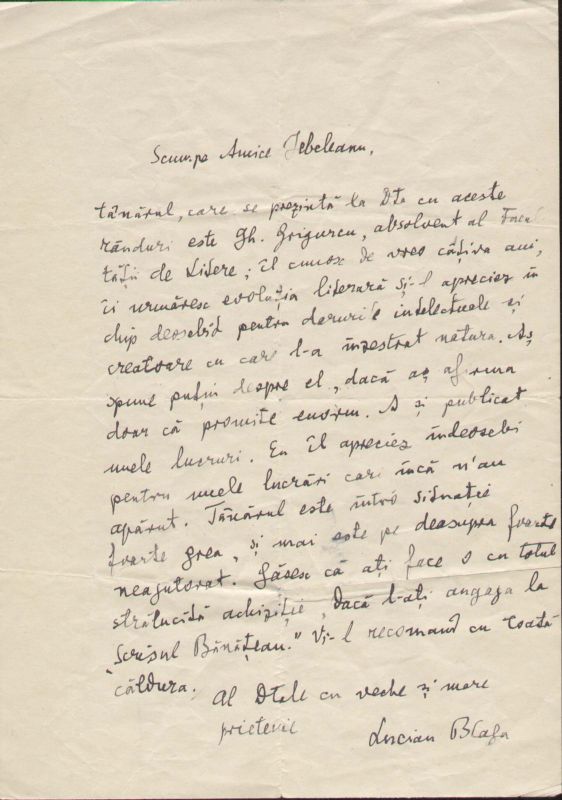 Scumpe Amice Jebeleanu,
tânărul, care se prezintă la Dta cu aceste
rânduri este Gh. Grigurcu, absolvent al Facul
tății de Litere; îl cunosc de vreo câțiva ani,
îi urmăresc evoluția literară și-l apreciez în
chip deosebit pentru darurile intelectuale și
creatoare cu cari l-a înzestrat natura. Aș
spune puțin despre el, dacă aș afirma
doar că promite enorm. A și publicat
unele lucruri. Eu îl apreciez îndeosebi
pentru unele lucrări cari încă n'au
apărut. Tânărul este într'o situație
foarte grea, și mai este pe deasupra foarte
neajutorat. Găsesc că ați face o cu totul
strălucită achiziție, dacă l-ați angaja la
"Scrisul Bănățean." Vi-l recomand cu toată
căldura.
Al Dtale cu veche și mare
prietenie
Lucian Blaga